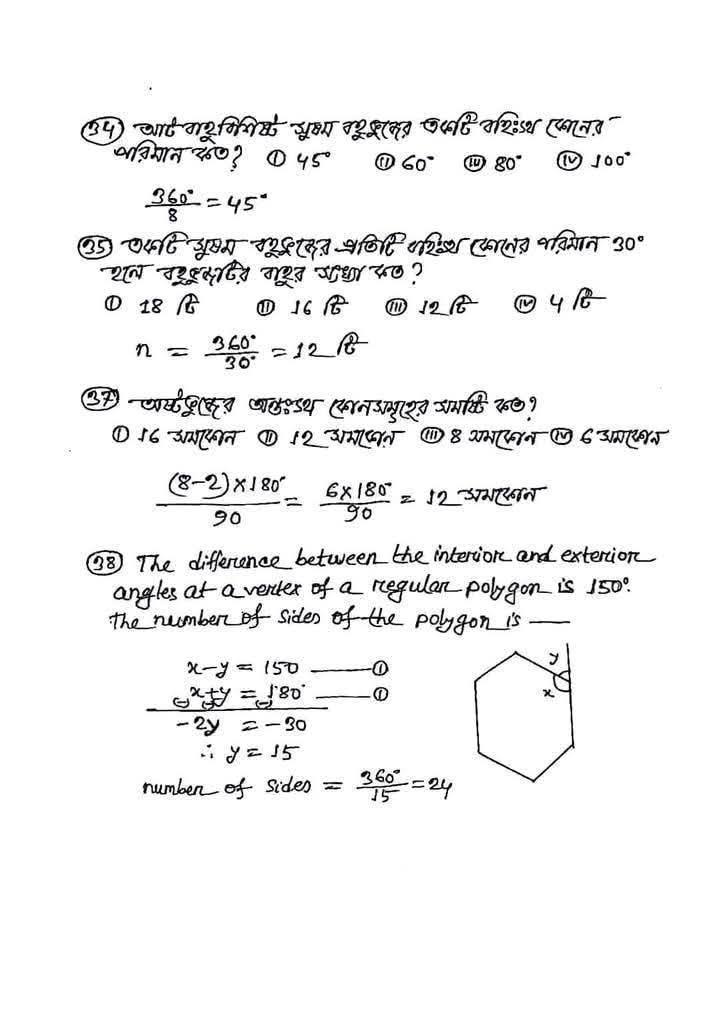 (34) আট বাহু বিশিষ্ট সুষম বহুভুজের একটি বহিঃস্থ কোনের
পরিমান কত? (i) 45° (ii) 60° (iii) 80° (iv) 100°
360°/8 = 45°
(35) একটি সুষম বহুভুজের প্রতিটি বহিঃস্থ কোনের পরিমান 30°
হলে বহুভুজটির বাহুর সংখ্যা কত?
(i) 18 টি (ii) 16 টি (iii) 12 টি (iv) 4 টি
n = 360°/30° = 12 টি
(37) অষ্টভুজের অন্তঃস্থ কোনসমূহের সমষ্টি কত?
(i) 16 সমকোন (ii) 12 সমকোন (iii) 8 সমকোন (iv) 6 সমকোন
(8-2)×180°/90 = 6×180°/90 = 12 সমকোন
(38) The difference between the interior and exterior
angles at a vertex of a regular polygon is 150°.
The number of sides of the polygon is —
x-y = 150 — (i)
x+y = 180° — (i)
-2y = -30
∴ y = 15
number of sides = 360°/15 = 24
y
x